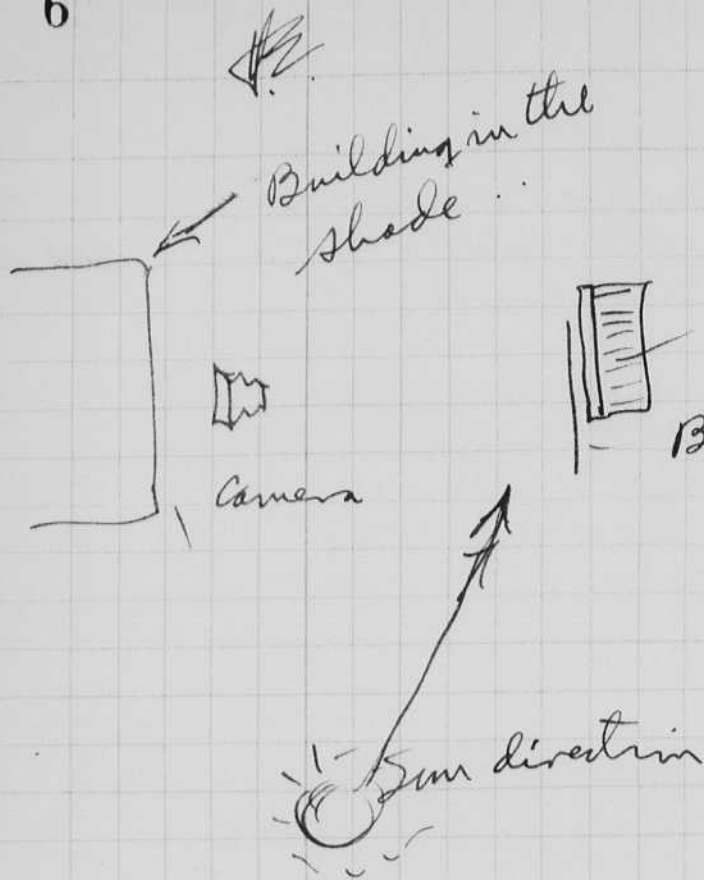 6
Building in the
shade
B
Camera
Sun direction